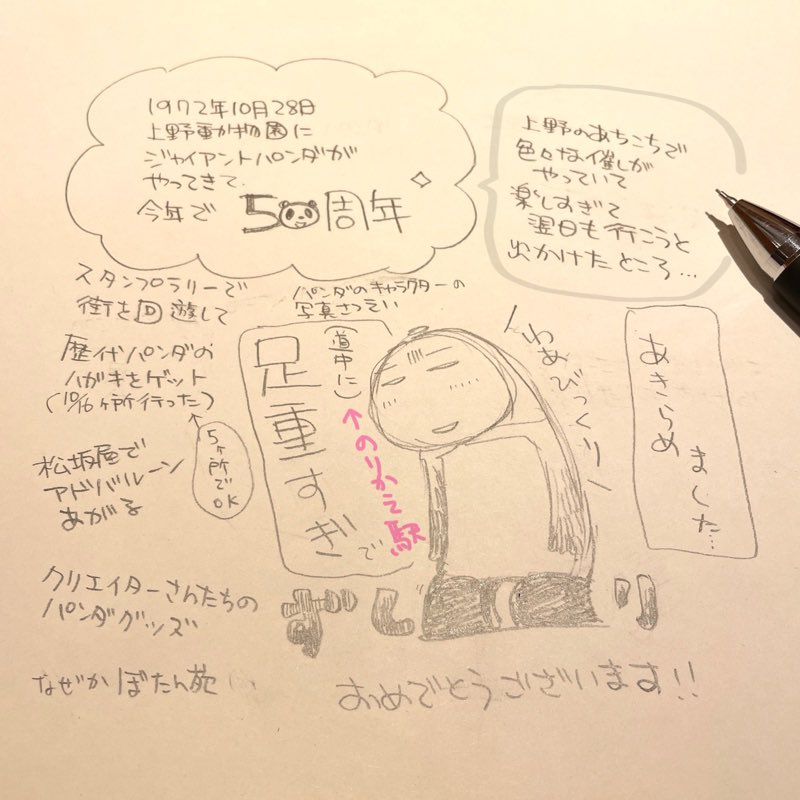 1972年10月28日
上野動物園に
ジャイアントパンダが
やってきて、
今年で 50周年
上野のあちこちで
色々な催しが
やっていて
楽しすぎて
翌日も行こうと
出かけたところ…
スタンプラリーで
街を回遊して
歴代パンダの
ハガキをゲット
(10/16ヶ所行った)
5ヶ所で
OK
松坂屋で
アドバルーン
あがる
クリエイターさんたちの
パンダグッズ
なぜかぼたん苑
パンダのキャラクターの
写真さつえい
(道中に)
足重すぎで
↑のりかえ駅
わぁびっくり
あきらめ
ました…
おめでとうございます!!